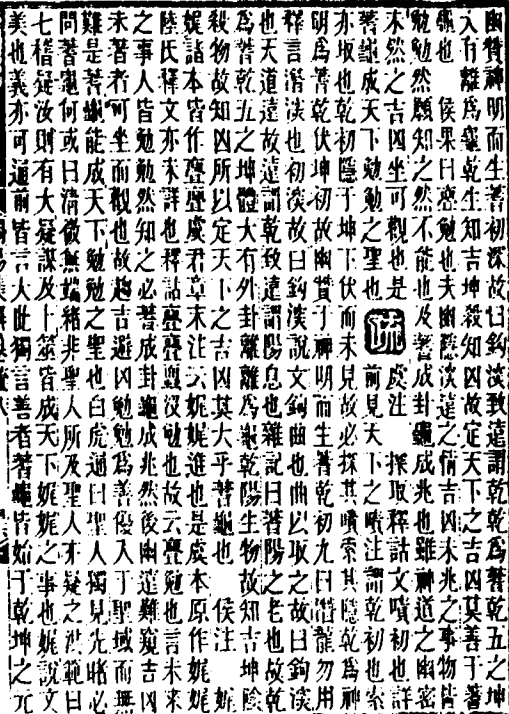 幽贊神明而生蓍初深故曰鉤深致遠謂乾乾爲蓍乾五之坤
大有離爲龜乾生知吉坤殺知凶故定天下之吉凶莫善于蓍
龜也 侯果曰亹勉也夫幽隱深遠之情吉凶未兆之事物皆
勉勉然願知之然不能也及蓍成卦龜成兆也雖神道之幽密
未然之吉凶坐可觀也是
蓍龜成天下勉勉之聖也 疏 虞注 探取釋詁文嘖初也詳
前見天下之嘖注謂乾初也索
亦取也乾初隱于坤下伏而未見故必探其嘖索其隱乾爲神
明爲蓍乾伏坤初故幽贊于神明而生蓍乾初九曰潛龍勿用
釋言潛深也初深故曰鉤深說文鉤曲也曲以取之故曰鉤深
也天道遠故遠謂乾致遠謂陽息也雜記曰蓍陽之老也故乾
爲蓍乾五之坤體大有外卦離離爲龜乾陽生物故知吉坤陰
殺物故知凶所以定天下之吉凶莫大乎蓍龜也 侯注 娓
娓諸本皆作亹亹虞君章末注云娓娓進也是虞本原作娓娓
陸氏釋文亦未詳也釋詁亹亹蠠沒勉也故云亹勉也言未來
之事人皆勉勉然知之必蓍成卦龜成兆然後幽遠難窺吉凶
未著者可坐而觀也故趨吉避凶勉勉爲善優入于聖域而無
難是蓍龜能成天下勉勉之聖也白虎通曰聖人獨見先睹必
問蓍龜何或曰清微無端緒非聖人所及聖人亦疑之洪範曰
七稽疑汝則有大疑謀及卜筮皆成天下娓娓之事也娓說文
美也義亦可通前皆言大此獨言善者蓍龜皆始于乾坤之元